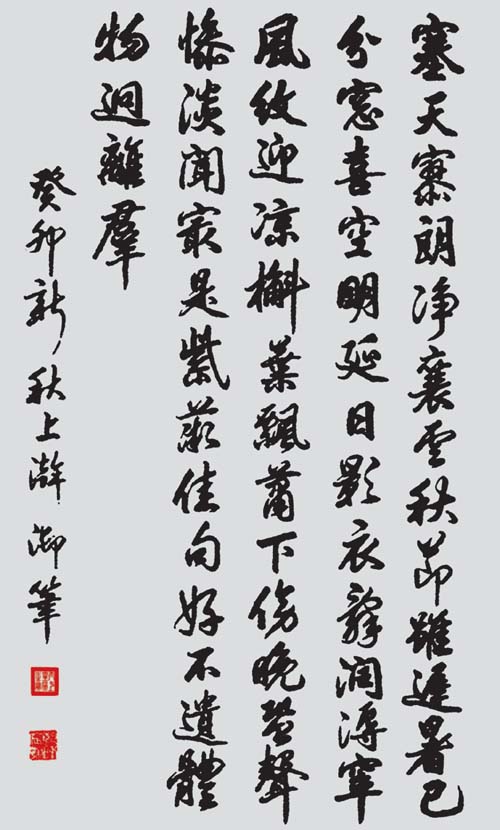 塞天寥朗净褰雲秋節雖遲暑已
分窓喜空明延日影衣辭潤溽窂
風紋迎凉槲葉飄蕭下傍晚蛩聲
慘淡聞冣是紫薇佳句好不遺體
物迥離羣
癸卯新秋上澣御筆